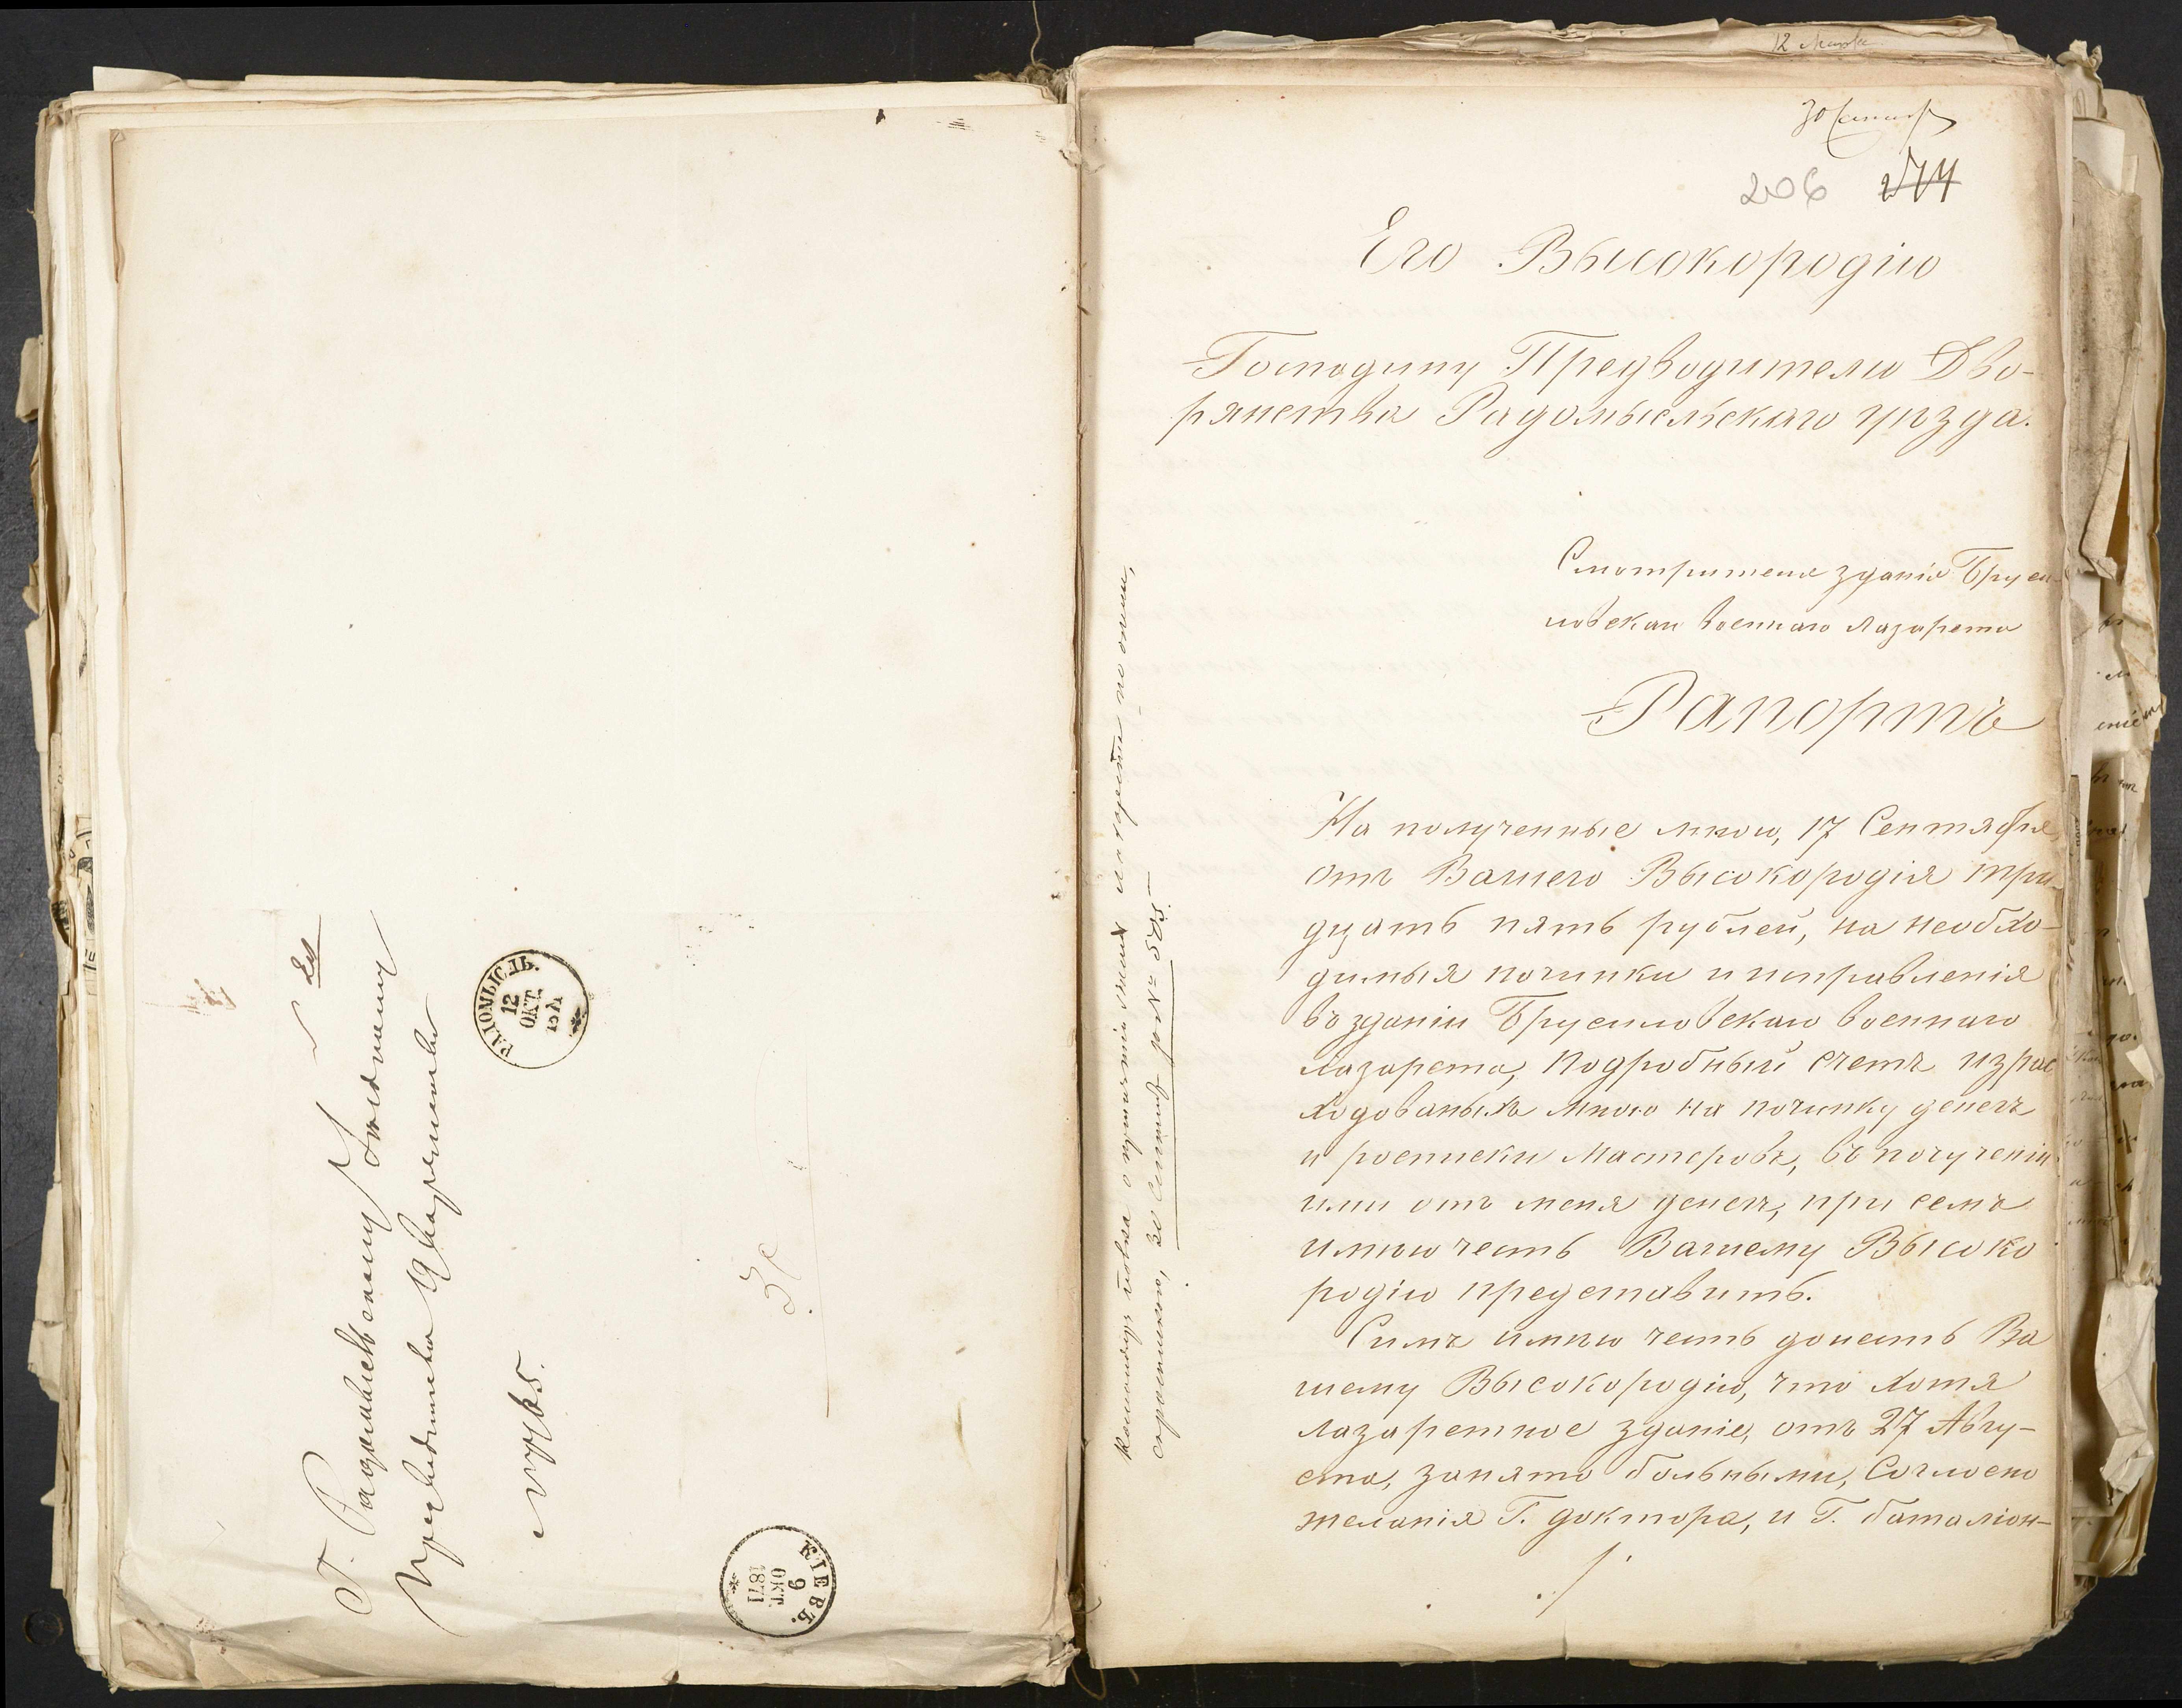 Г. Радомысльскому Уѣздному
Предводителю Дворянства
№ 4765.
РАДОМЫСЛЬ.
12
ОКТ.
1871
КІЕВЪ.
9
ОКТ.
1871
12 Марта
30 Сентяб
206 274
Его Высокородію
Господину Предводителю Дво-
рянства Радомысльскаго уѣзда.
Смотрителя зданія Бруси-
ловскаго военнаго Лазарета
Рапортъ
На полученные мною, 17 Сентября,
отъ Вашего Высокородія трид-
цать пять рублей, на необхо-
димыя починки и исправленія
въ зданіи Брусиловскаго военнаго
Лазарета, Подробный счетъ израс
ходованыхъ мною на починку денегъ
и росписки Мастеровъ, въ полученіи
ими отъ меня денегъ, при семъ
имѣю честь Вашему Высоко
родію представить.
Симъ имѣю честь донесть Ва
шему Высокородію, что хотя
лазаретное зданіе, отъ 27 Авгу-
ста, занято больными, Согласно
желанія Г. доктора, и Г. баталіон-
./.